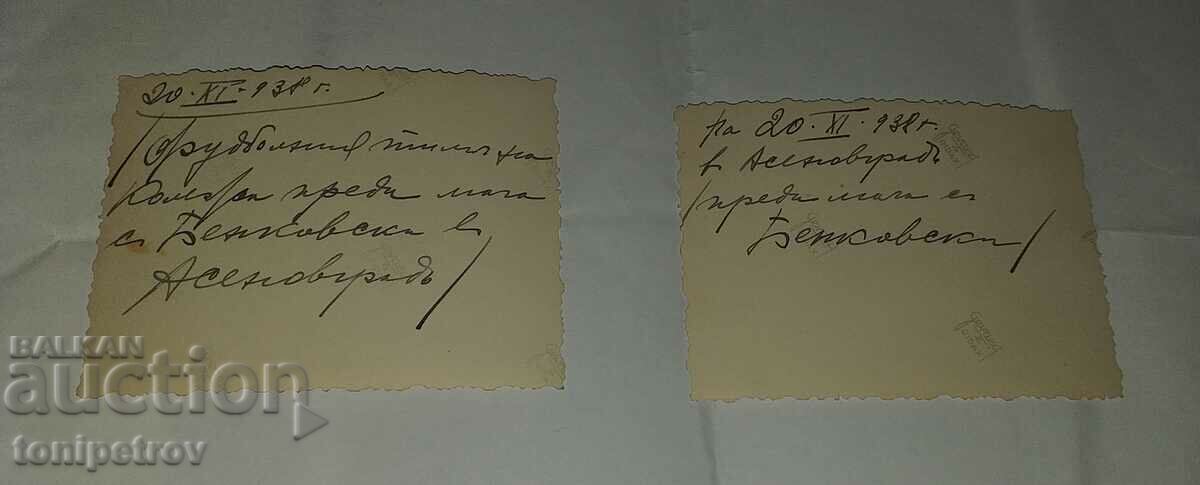 20·XI·938 г.
/Футболния тимъ на
преди мача
с Бенковски в
Асеновградъ/
На 20·XI·938 г.
в Асеновградъ
/преди мача с
Бенковски/
BALKAN
auction
tonipetrov